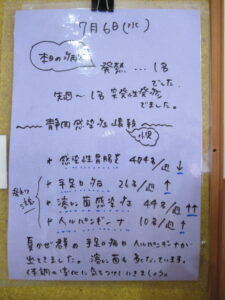 7月6日(水)
本日の病欠
発熱…1名
でした.
先週〜1名 突発性発疹
でました。
静岡感染症情報
小児
感染性胃腸炎 404名/週 ↓
手足口病 26名/週 ↑
溶レン菌感染症 44名/週 ↑↑
ヘルパンギーナ 10名/週 ↑
夏かぜ群の手足口病や ヘルパンギーナが
出てきました。溶レン菌も多くでています。
体調の変化に気をつけていきましょう。